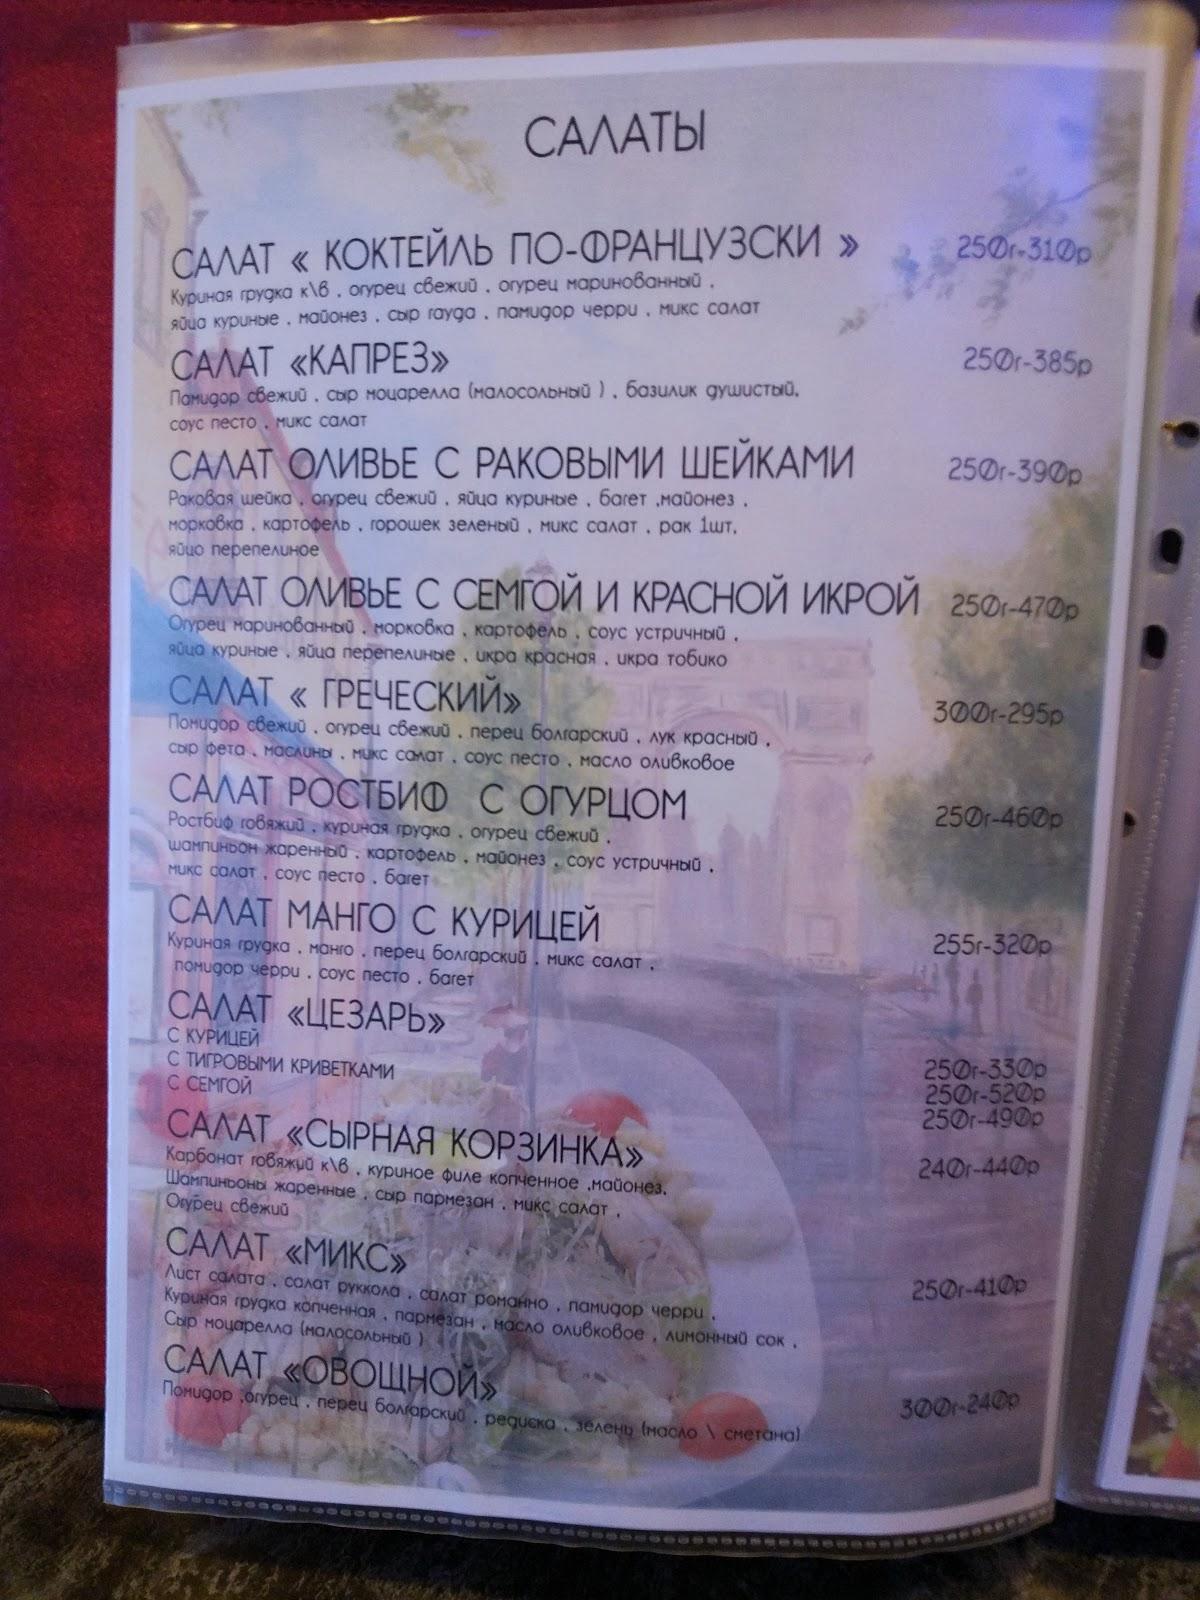 САЛАТЫ
САЛАТ « КОКТЕЙЛЬ ПО-ФРАНЦУЗСКИ » 250г-310р
Куриная грудка к\в , огурец свежий , огурец маринованный ,
яйца куриные , майонез , сыр гауда , памидор черри , микс салат
САЛАТ «КАПРЕЗ» 250г-385р
Памидор свежий , сыр моцарелла (малосольный ) , базилик душистый,
соус песто , микс салат
САЛАТ ОЛИВЬЕ С РАКОВЫМИ ШЕЙКАМИ 250г-390р
Раковая шейка , огурец свежий , яйца куриные , багет ,майонез ,
морковка , картофель , горошек зеленый , микс салат , рак 1шт,
яйцо перепелиное
САЛАТ ОЛИВЬЕ С СЕМГОЙ И КРАСНОЙ ИКРОЙ 250г-470р
Огурец маринованный , морковка , картофель , соус устричный ,
яйца куриные , яйца перепелиные , икра красная , икра тобико
САЛАТ « ГРЕЧЕСКИЙ» 300г-295р
Помидор свежий , огурец свежий , перец болгарский , лук красный ,
сыр фета , маслины , микс салат , соус песто , масло оливковое
САЛАТ РОСТБИФ С ОГУРЦОМ 250г-460р
Ростбиф говяжий , куриная грудка , огурец свежий ,
шампиньон жаренный , картофель , майонез , соус устричный ,
микс салат , соус песто , багет
САЛАТ МАНГО С КУРИЦЕЙ 255г-320р
Куриная грудка , манго , перец болгарский , микс салат ,
помидор черри , соус песто , багет
САЛАТ «ЦЕЗАРЬ»
С КУРИЦЕЙ 250г-330р
С ТИГРОВЫМИ КРИВЕТКАМИ 250г-520р
С СЕМГОЙ 250г-490р
САЛАТ «СЫРНАЯ КОРЗИНКА» 240г-440р
Карбонат говяжий к\в , куриное филе копченное ,майонез,
Шампиньоны жаренные , сыр пармезан , микс салат ,
Огурец свежий
САЛАТ «МИКС» 250г-410р
Лист салата , салат руккола , салат романно , памидор черри ,
Куриная грудка копченная , пармезан , масло оливковое , лимонный сок ,
Сыр моцарелла (малосольный )
САЛАТ «ОВОЩНОЙ» 300г-240р
Помидор ,огурец , перец болгарский , редиска , зелень (масло \ сметана)